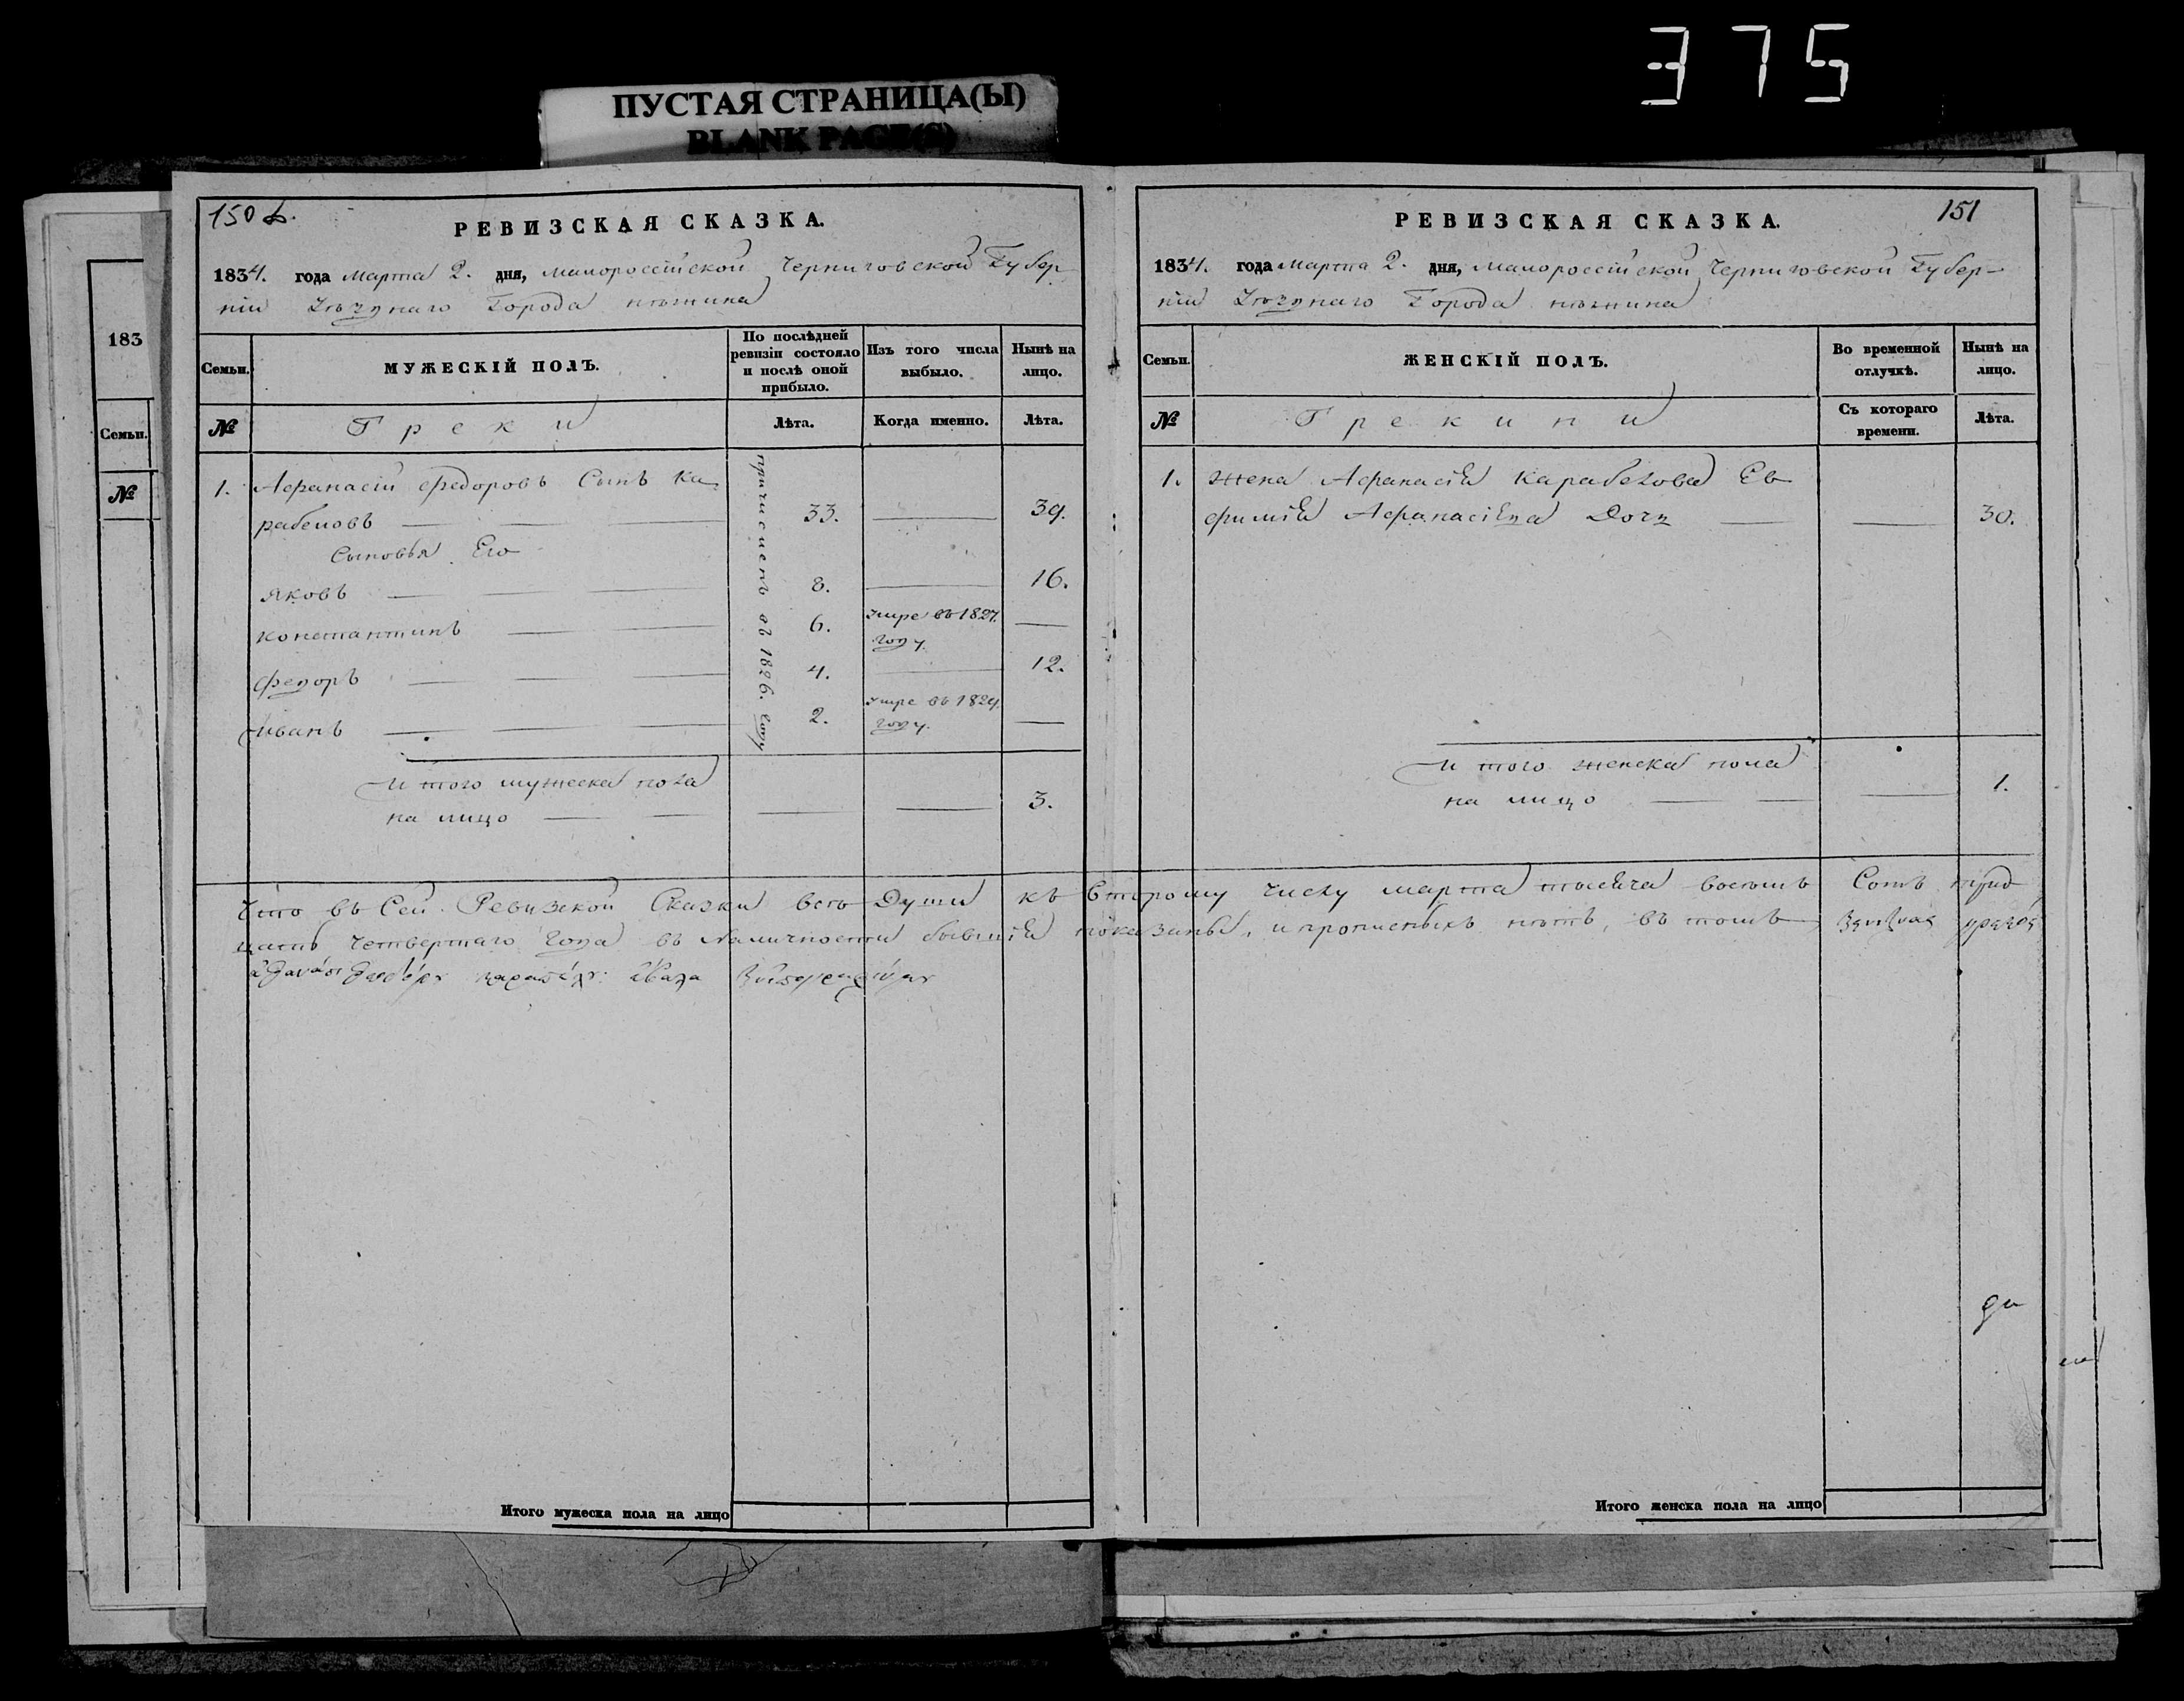 375
ПУСТАЯ СТРАНИЦА(Ы)
BLANK PAGE(S)
183
Семьи.
№
150 об.
РЕВИЗСКАЯ СКАЗКА.
1834. года Марта 2. дня, Малороссійской Черниговской Губер
ніи Уѣзднаго Города Нѣжина
Семьи.
МУЖЕСКІЙ ПОЛЪ.
По послѣдней ревизіи состояло и послѣ оной прибыло.
Изъ того числа выбыло.
Нынѣ на лицо.
№
Греки
Лѣта.
Когда именно.
Лѣта.
причисленъ въ 1826. году
1. Афанасій Федоровъ Сынъ Ка
рабеловъ 33. 39.
Сыновья Его
Яковъ 8. 16.
Константинъ 6. умре въ 1827. году.
Федоръ 4. 12.
Иванъ 2. умре въ 1829. году.
И того мужеска пола
на лицо 3.
151
РЕВИЗСКАЯ СКАЗКА.
1834. года Марта 2. дня, Малороссійской Черниговской Губер-
ніи Уѣзднаго Города Нѣжина
Семьи.
ЖЕНСКІЙ ПОЛЪ.
Во временной отлучкѣ.
Нынѣ на лицо.
№
Грекини
Съ котораго времени.
Лѣта.
1. Жена Афанасія Карабелова Ев
фимія Афанасіева Дочь 30.
И того женска пола
на лицо 1.
Что въ Сей Ревизской Сказки всѣ Души къ Второму числу марта тысяча восемь Сотъ трид
цать четвертаго Года въ Наличности бывшія показаны, и прописныхъ нѣтъ, въ томъ
Итого мужеска пола на лицо
Итого женска пола на лицо